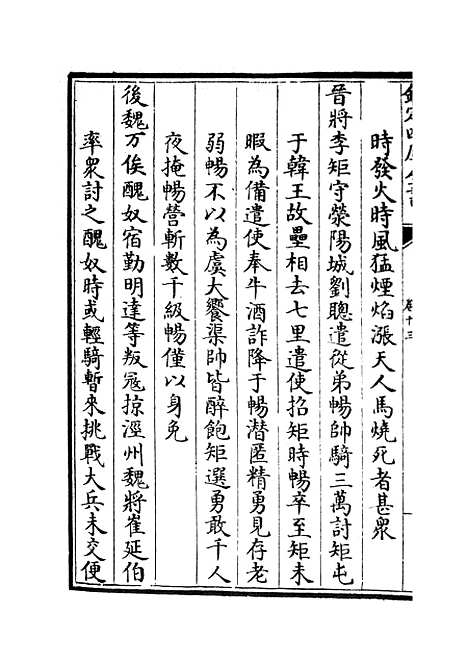 時發火時風猛煙焰漲天人馬燒死者甚衆
晉將李矩守滎陽城劉聰遣從弟暢帥騎三萬討矩屯
于韓王故壘相去七里遣使招矩時暢卒至矩未
暇為備遣使奉牛酒詐降于暢潜匿精勇見存老
弱暢不以為虞大饗渠帥皆醉飽矩選勇敢千人
夜掩暢營斬數千級暢僅以身免
後魏万俟醜奴宿勤明達等叛冦掠涇州魏將崔延伯
率衆討之醜奴時或輕騎暫來挑戰大兵未交便